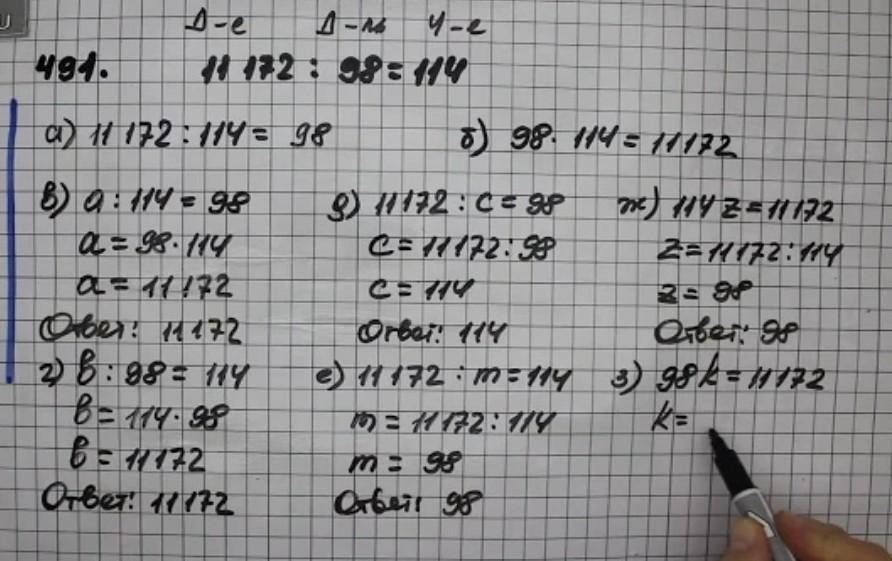 Д-е Д-ль Ч-е
491. 11 172 : 98 = 114
а) 11 172 : 114 = 98
б) 98 · 114 = 11172
в) a : 114 = 98
a = 98 · 114
a = 11172
Ответ: 11172
г) b : 98 = 114
b = 114 · 98
b = 11172
Ответ: 11172
д) 11172 : c = 98
c = 11172 : 98
c = 114
Ответ: 114
е) 11172 : m = 114
m = 11172 : 114
m = 98
Ответ: 98
ж) 114 z = 11172
z = 11172 : 114
z = 98
Ответ: 98
з) 98 k = 11172
k =